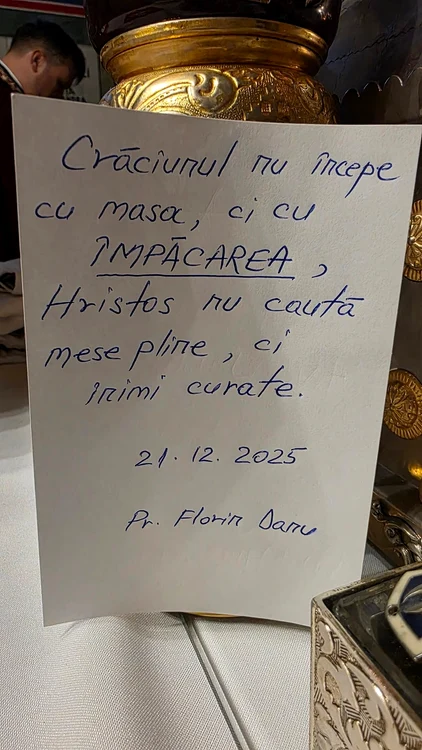 Crăciunul nu începe
cu masa, ci cu
ÎMPĂCAREA,
Hristos nu caută
mese pline, ci
inimi curate.
21. 12. 2025
Pr. Florin Danu